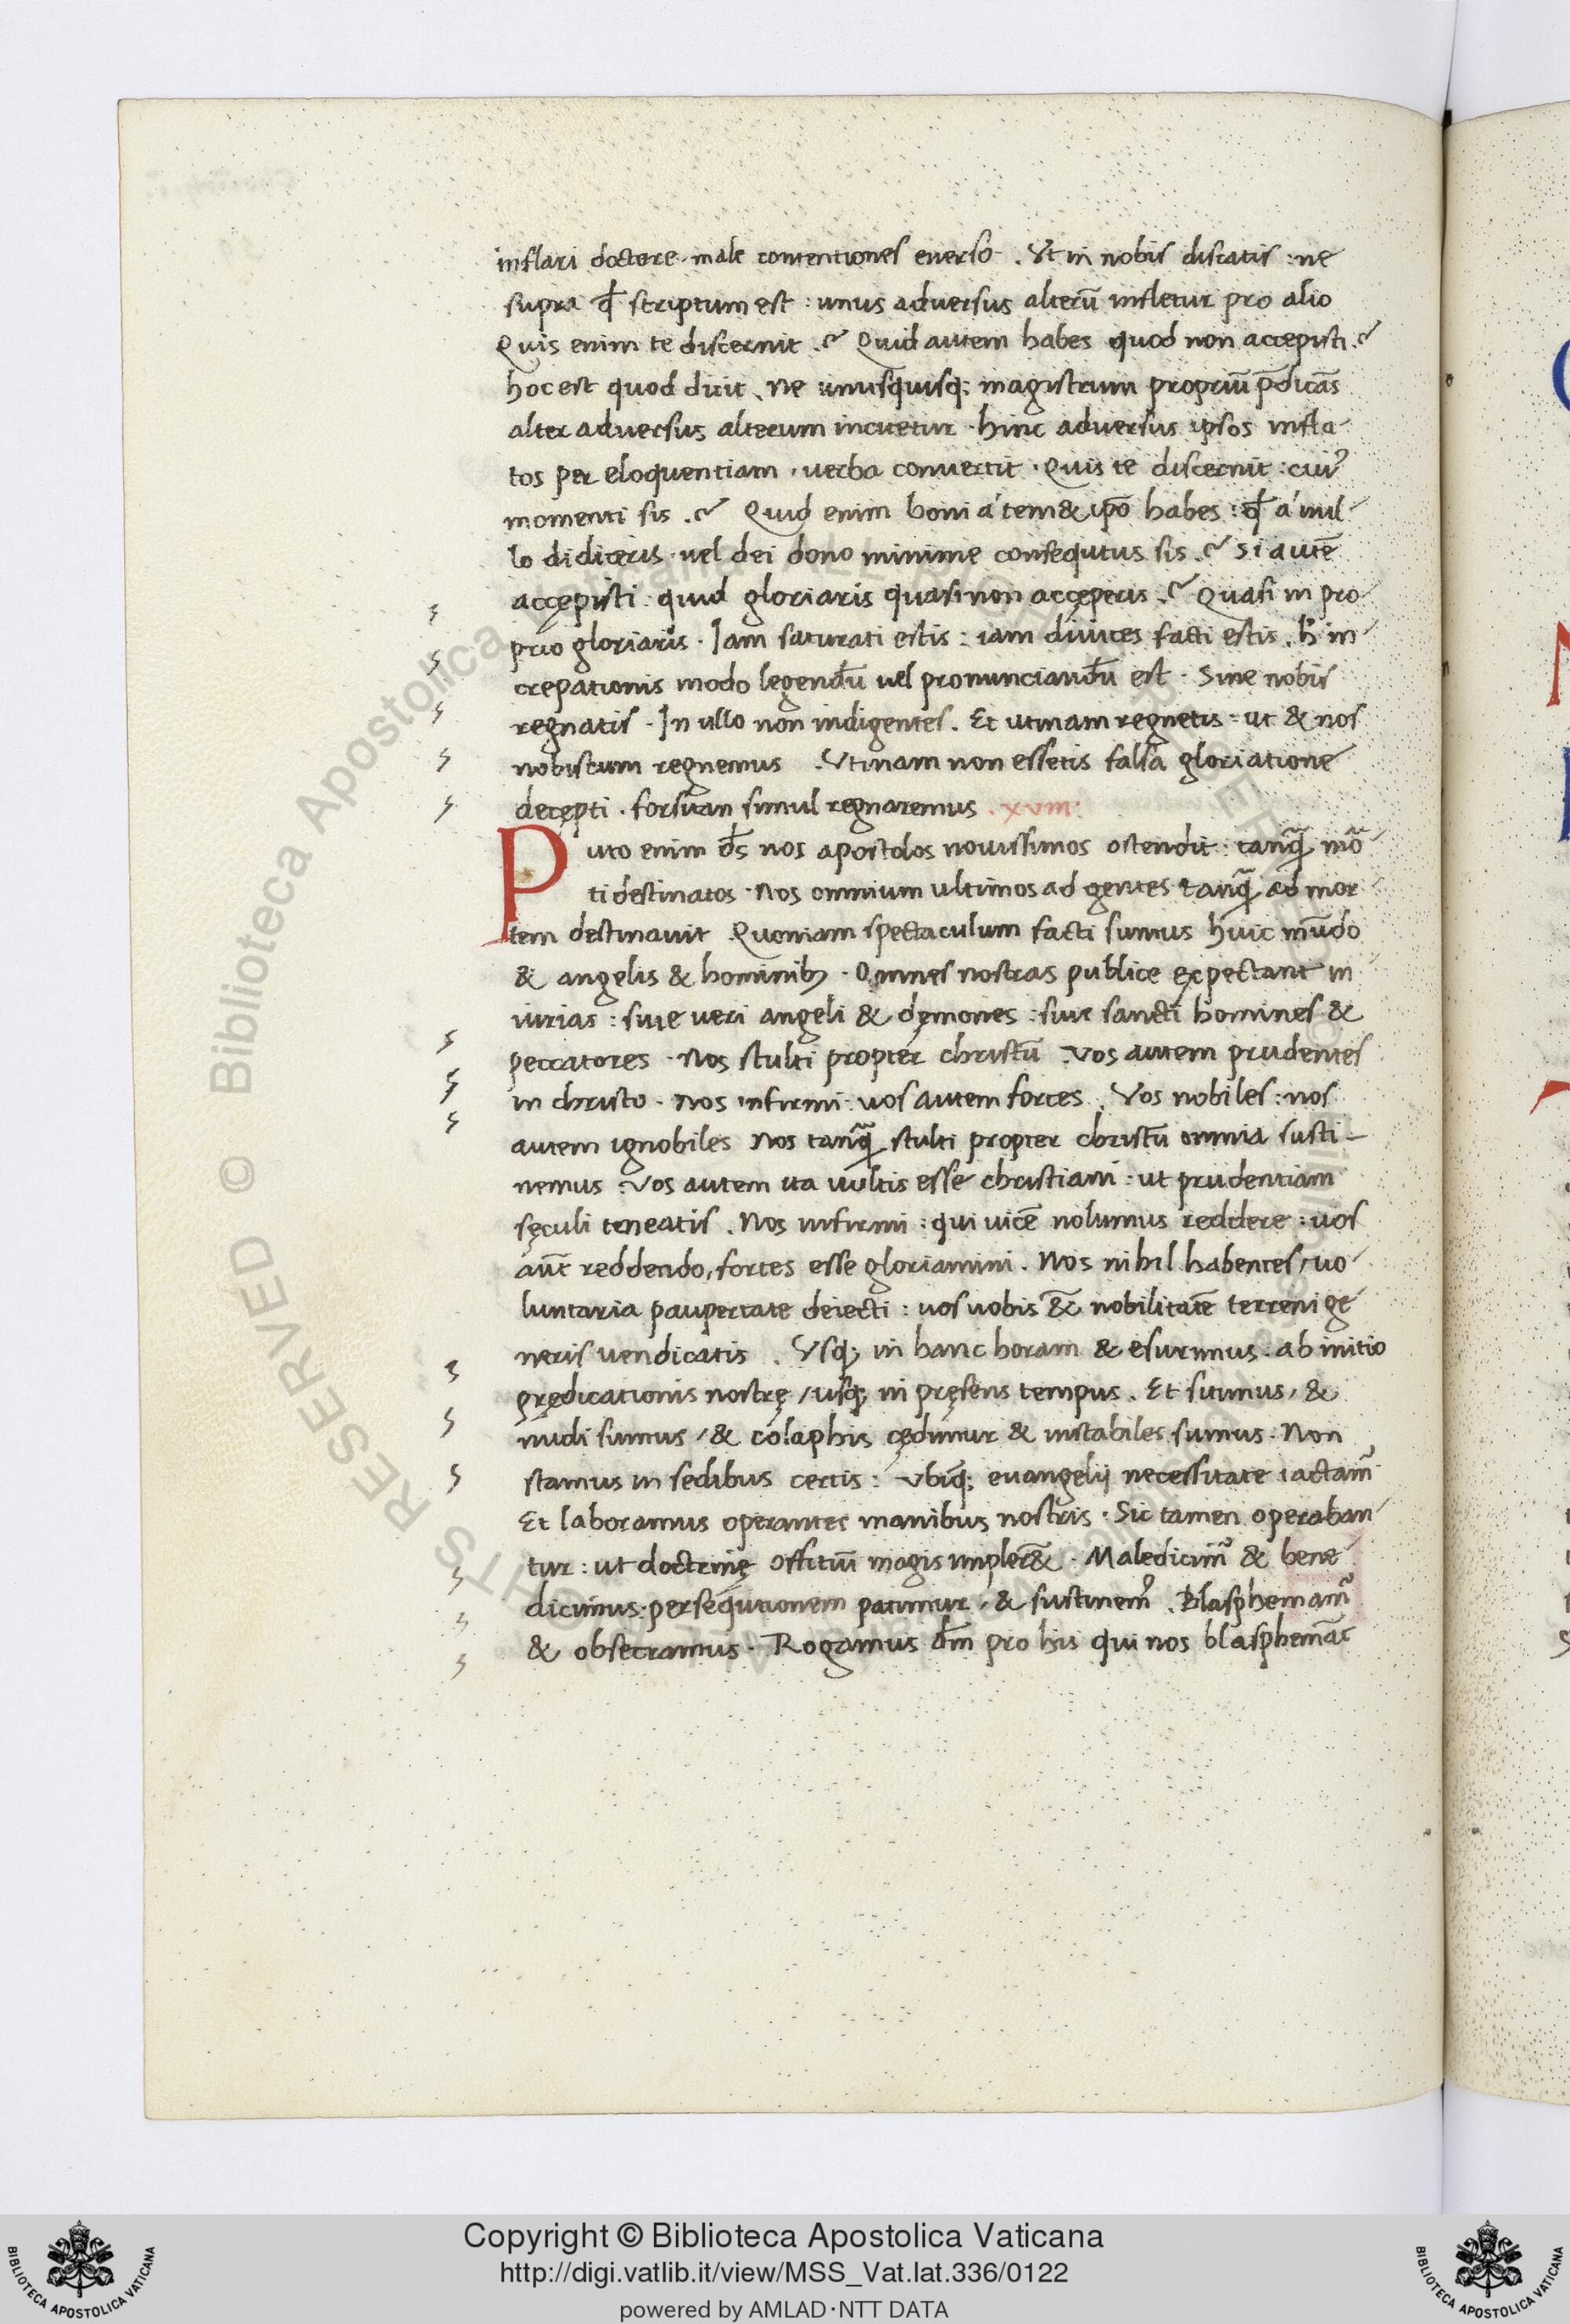 inflari doctore male contentiones euerso. Vt in nobis discatis : ne
supra qď scriptum est : unus aduersus alterū infletur pro alio
Quis enim te discernit .? Quid autem habes quod non accepisti.?
hoc est quod dicit. Ne unusquisq; magistrum propriū p̄dicās
alter aduersus alterum incitetur. hinc aduersus ipsos infla
tos per eloquentiam, uerba conuertit. Quis te discernit : cuiꝰ
momenti sis .? Quid enim boni á tem&ip̄o habes : qď á nul
lo didiceris uel dei dono minime consequtus sis .? Si autē
accępisti : quid gloriaris quasi non accęperis .? Quasi in pro
prio gloriaris. Iam saturati estis : iam diuites facti estis. h̄ in
crepationis modo legendū uel pronunciandū est. Sine nobis
regnatis. In ullo non indigentes. Et utinam regnetis : ut & nos
nobiscum regnemus. Vtinam non essetis falsa gloriatione
decępti. forsitan simul regnaremus. xviii.
Puto enim d̄s nos apostolos nouissimos ostendit : tanq̄ mō
ti destinatos. Nos omnium ultimos ad gentes tanq̄ ad mor
tem destinauit Quoniam spectaculum facti sumus huic mūdo
& angelis & hominibꝫ. Omnes nostras publice expectant in
iurias : siue ueri angeli & dęmones : siue sancti homines &
peccatores. Nos stulti propter christū. Vos autem prudentes
in christo. Nos infirmi : uos autem fortes. Vos nobiles : nos
autem ignobiles Nos tanq̄ stulti propter christū omnia susti-
nemus. Vos autem ita uultis esse christiani : ut prudentiam
sęculi teneatis. Nos infirmi : qui uicē nolumus reddere : uos
aūt reddendo, fortes esse gloriamini. Nos nihil habentes / uo
luntaria paupertate deiecti : uos uobis &̄ nobilitatē terreni ge
neris uendicatis. Vsq; in hanc horam & esurimus. ab initio
prędicationis nostrę / usq; in pręsens tempus. Et sitimus, &
nudi sumus / & colaphis cędimur & instabiles sumus. Non
stamus in sedibus certis : Vbiq; euangelij necessitate iactamꝰ
Et laboramus operantes manibus nostris. Sic tamen operaban
tur : ut doctrinę offitiū magis implēr&. Maledicimꝰ & bene
dicimus : persequtionem patimur, & sustinemꝰ. Blasphemamꝰ
& obsecramus. Rogamus dm̄ pro his qui nos blasphemāt
Copyright © Biblioteca Apostolica Vaticana
http://digi.vatlib.it/view/MSS_Vat.lat.336/0122
powered by AMLAD·NTT DATA